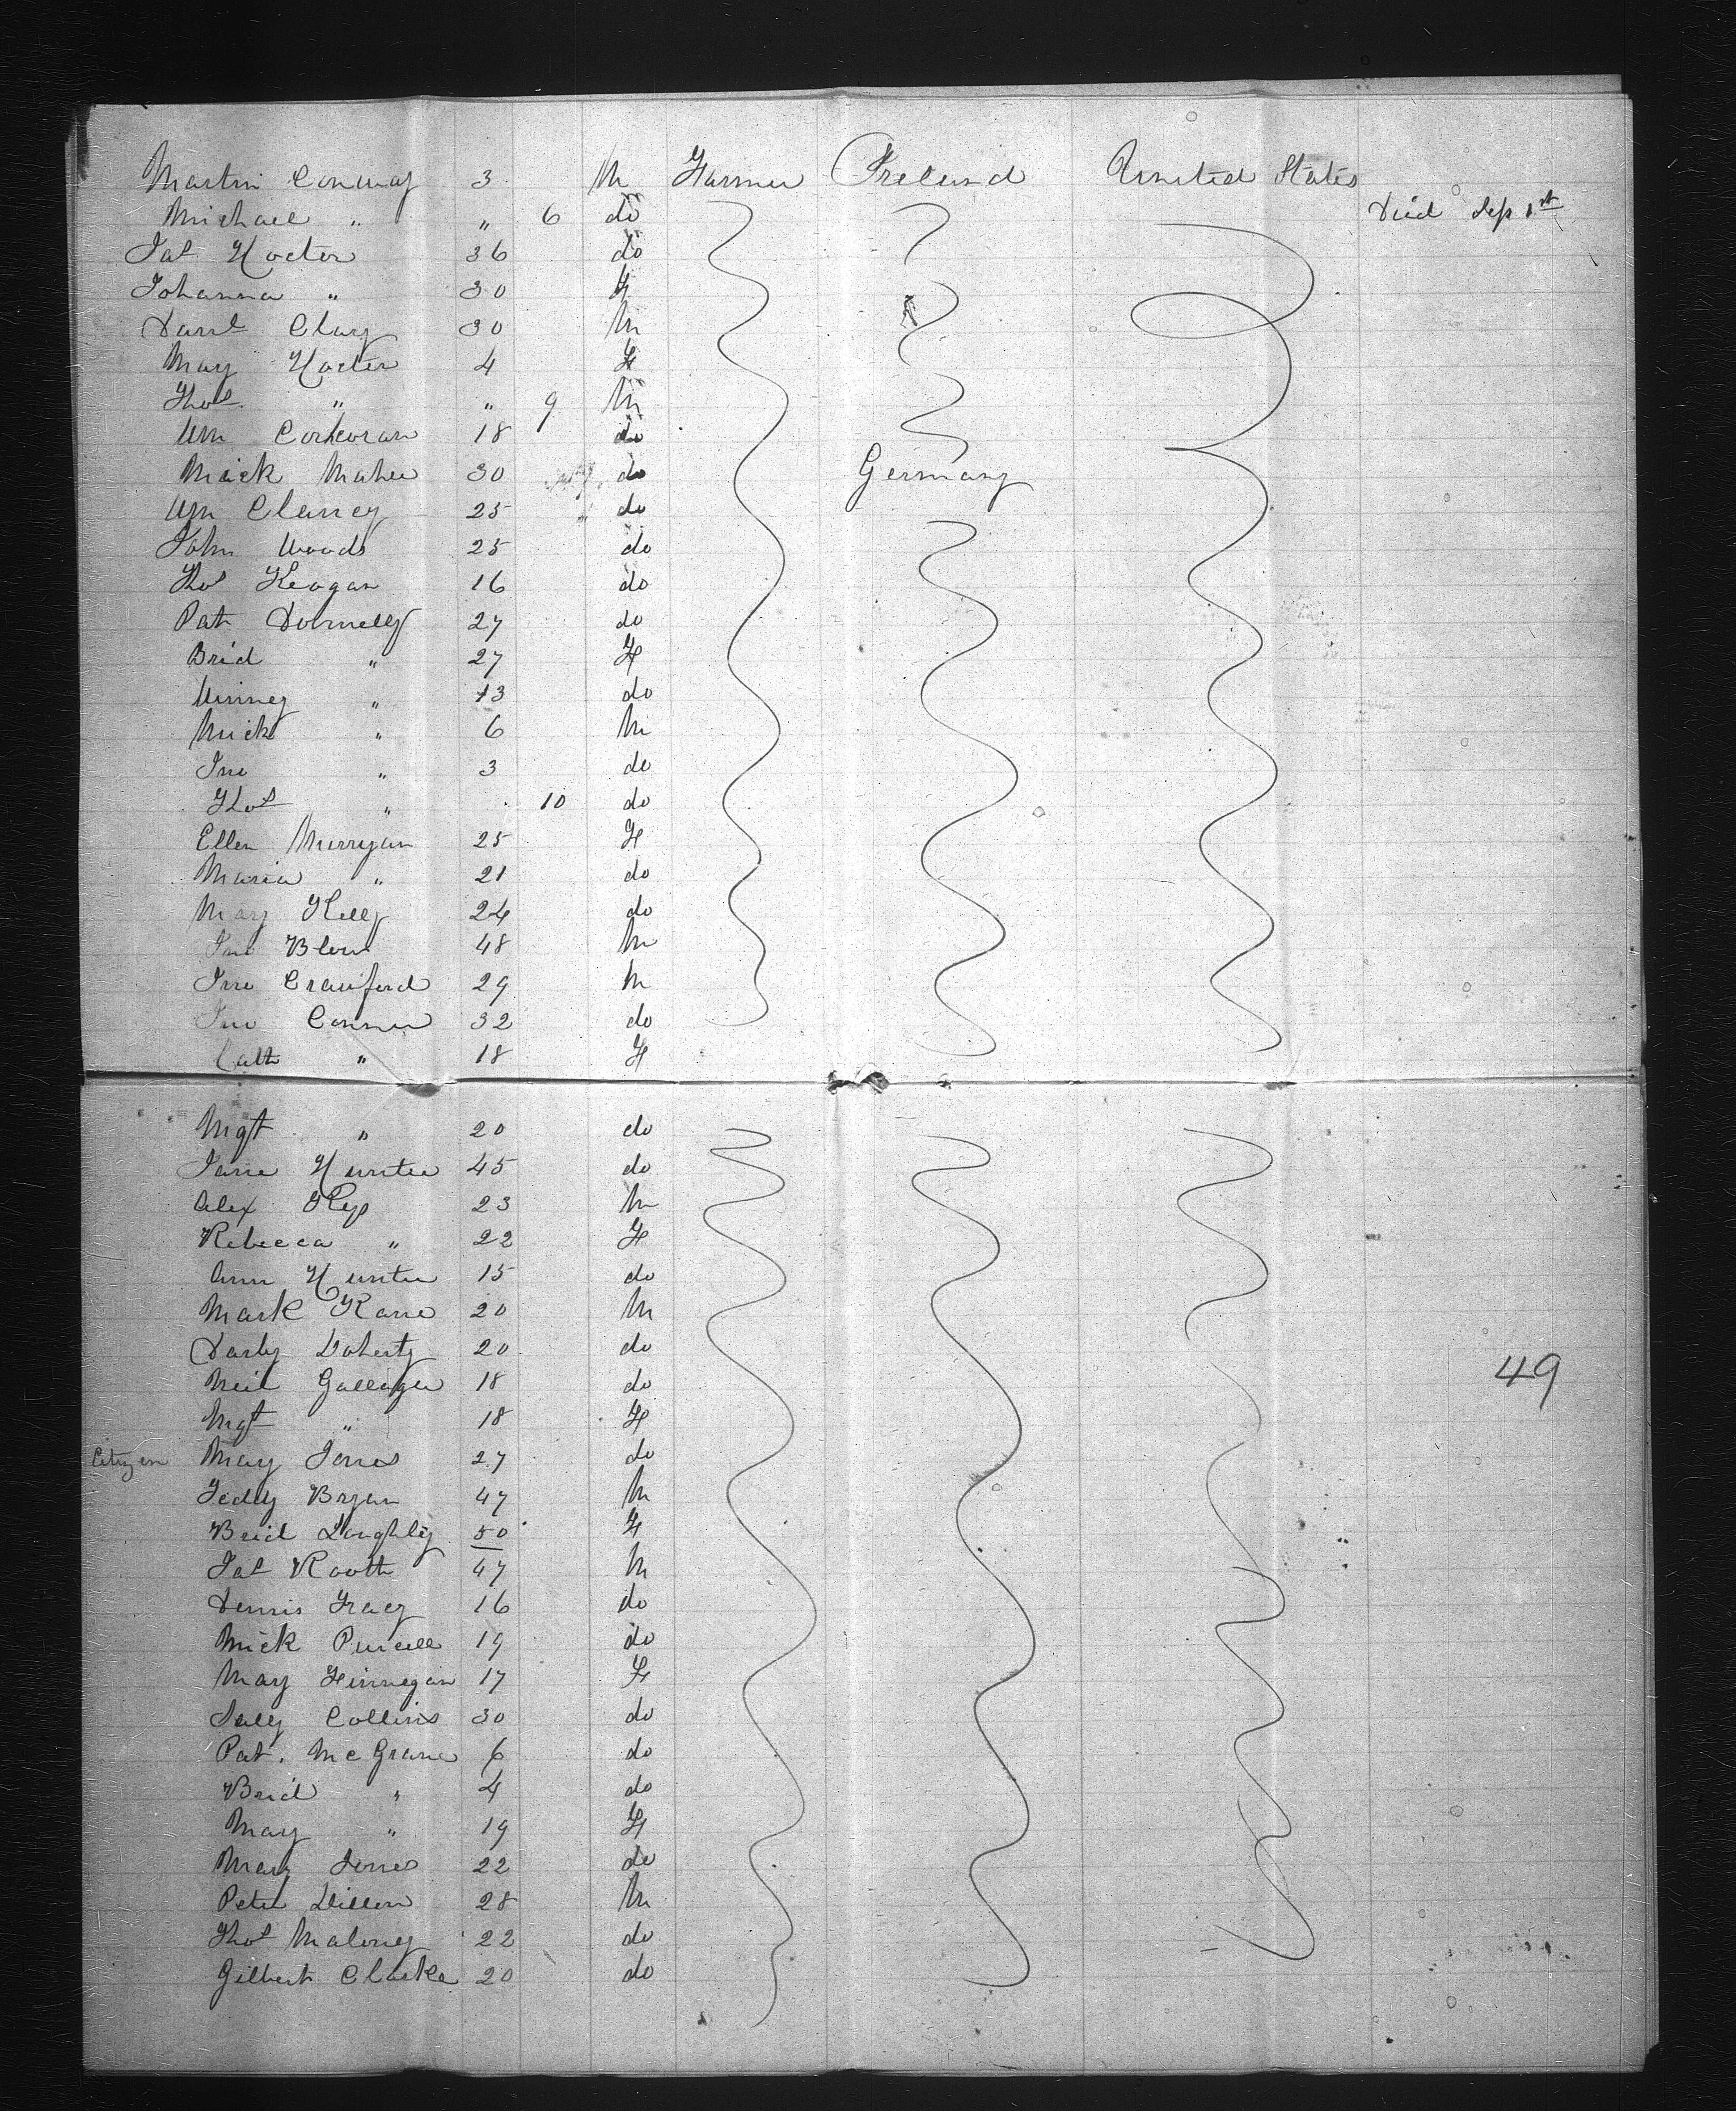 Martin Conway 3 M Farmer Ireland United States
Michael " " 6 do Died Sep 1st
Jas Hocter 36 do
Johanna " 30 F
Danl Clary 30 M
Mary Hocter 4 F
Thos " " 9 M
Wm Corkoran 18 do
Mick Maher 30 do Germany
Wm Clancy 25 do
John Woods 25 do
Thos Keogan 16 do
Pat Donnelly 27 do
Brid " 27 F
Winney " 13 do
Mick " 6 M
Jno " 3 do
Thos " 10 do
Ellen Murryan 25 F
Maria " 21 do
Mary Kelly 24 do
Jno 48 M
Jno Crawford 29 M
Jno Conner 32 do
Cath " 18 F
Mgt " 20 do
Jane Hunter 45 do
Alex 23 M
Rebecca " 22 F
Ann Hunter 15 do
Mark Kane 20 M
Darby Doherty 20 do
Neil Gallager 18 do
49
Mgt " 18 F
Citizen Mary Jones 27 do
Teddy Bryan 47 M
Brid Loughly 50 F
Jas Rooth 47 M
Dennis Tracy 16 do
Mick Purcell 19 do
Mary Finnegan 17 F
Sally Collins 30 do
Pat. McGrane 6 do
Brid " 4 do
Mary " 19 F
Mary Jones 22 do
Peter Dillon 28 M
Thos Malony 22 do
Gilbert Clarke 20 do